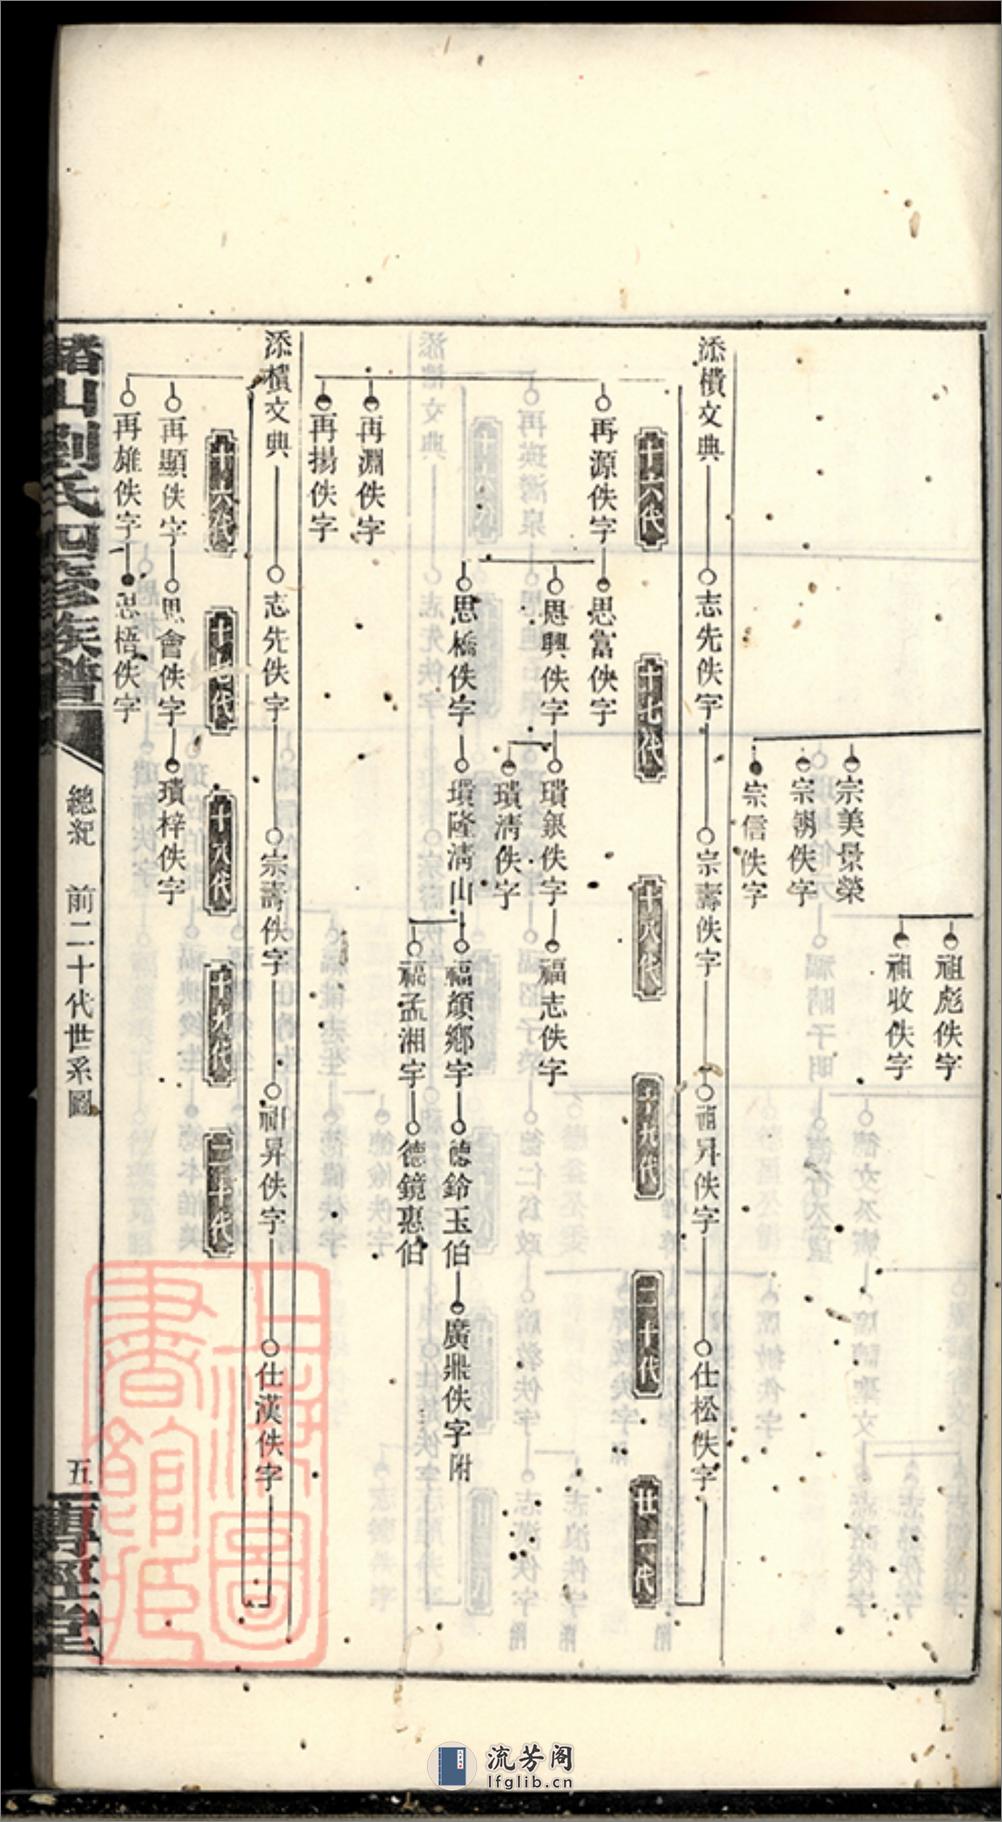 祖彪佚字
祖收佚字
宗美景榮
宗朝佚字
宗信佚字
添樻文典
志先佚字
宗壽佚字
祖昇佚字
仕松佚字
十六代
十七代
十八代
十九代
二十代
廿一代
再源佚字
思富佚字
思興佚字
璝銀佚字
福志佚字
璝淸佚字
思橋佚字
璝隆淸山
福顏鄉字
德鈴玉伯
廣鼎佚字附
福孟湘字
德鏡惠伯
再淵佚字
再揚佚字
添樻文典
志先佚字
宗壽佚字
祖昇佚字
仕漢佚字
十六代
十七代
十八代
十九代
二十代
再顯佚字
思會佚字
璝梓佚字
再雄佚字
思梧佚字
劉氏四修族譜
總紀 前二十代世系圖
五
上海圖書館藏
流芳阁
lfglib.cn